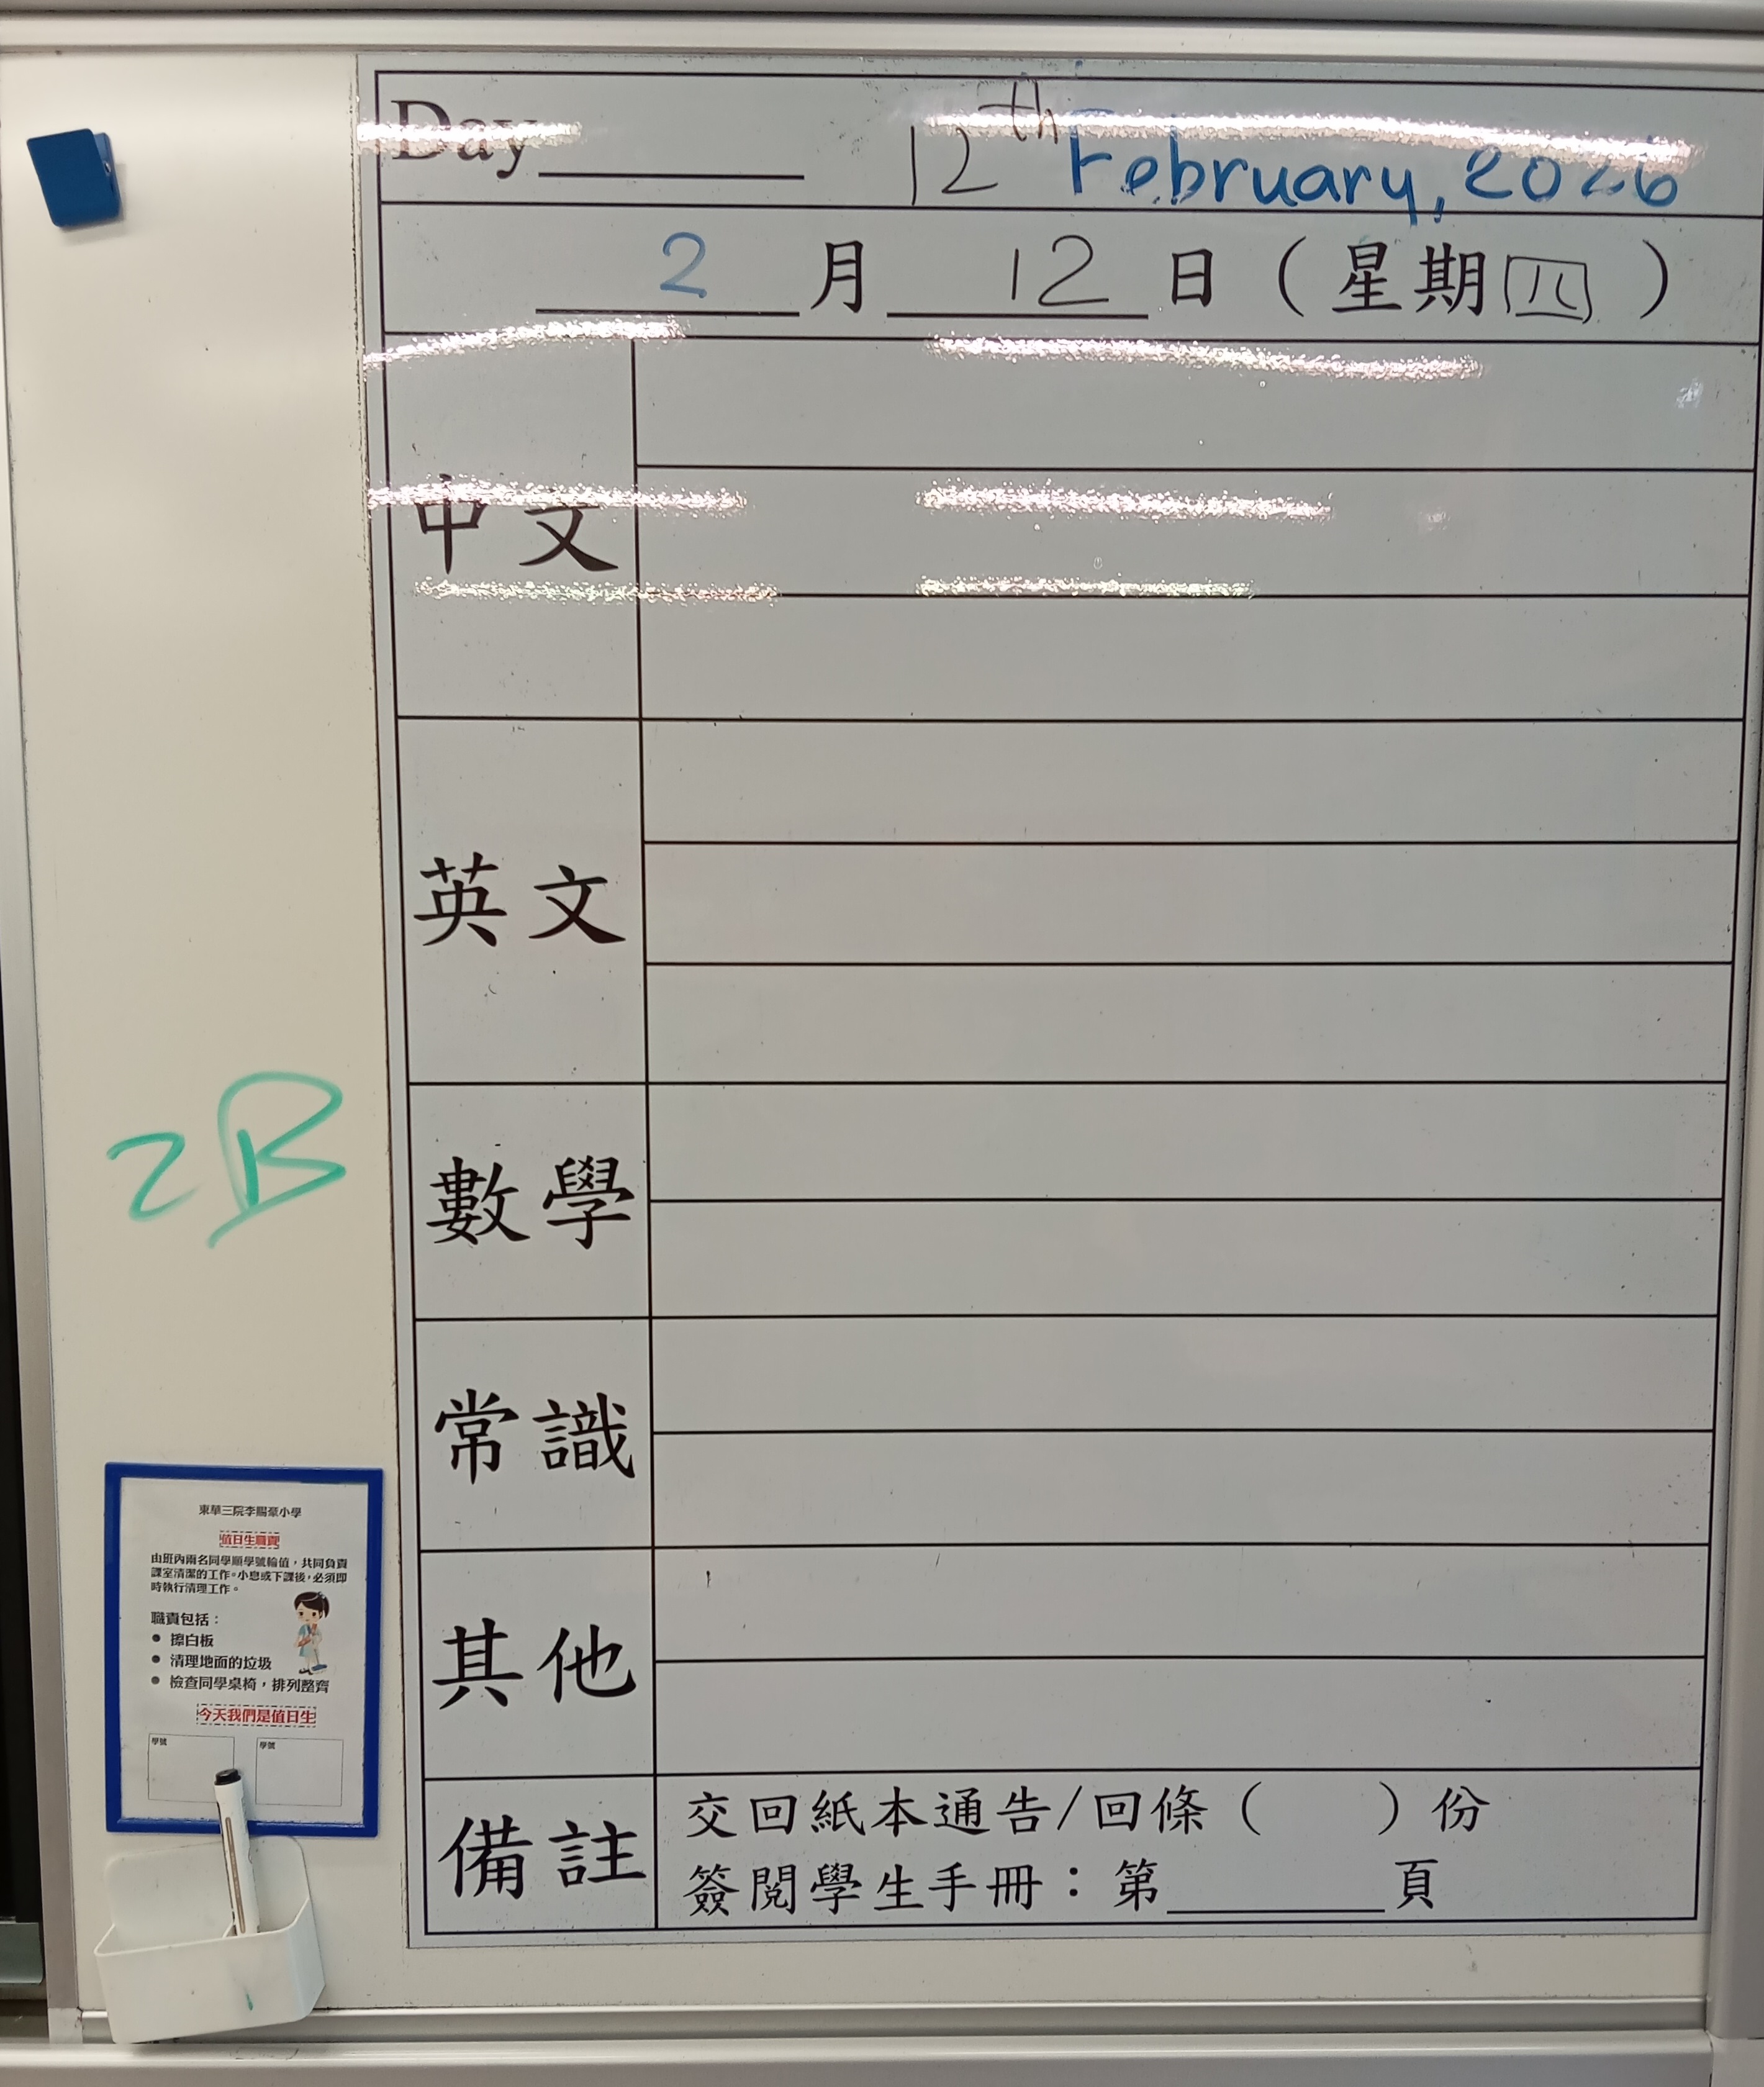 Day______ 12th February, 2026
2 月 12 日 (星期四)
中文
英文
數學
常識
其他
備註
交回紙本通告/回條 ( ) 份
簽閱學生手冊：第______頁
2B
東華三院李賜豪小學
值日生職責
由班內兩名同學順學號輪值，共同負責
課室清潔的工作。小息或下課後，必須即
時執行清理工作。
職責包括：
● 擦白板
● 清理地面的垃圾
● 檢查同學桌椅，排列整齊
今天我們是值日生
學號 學號